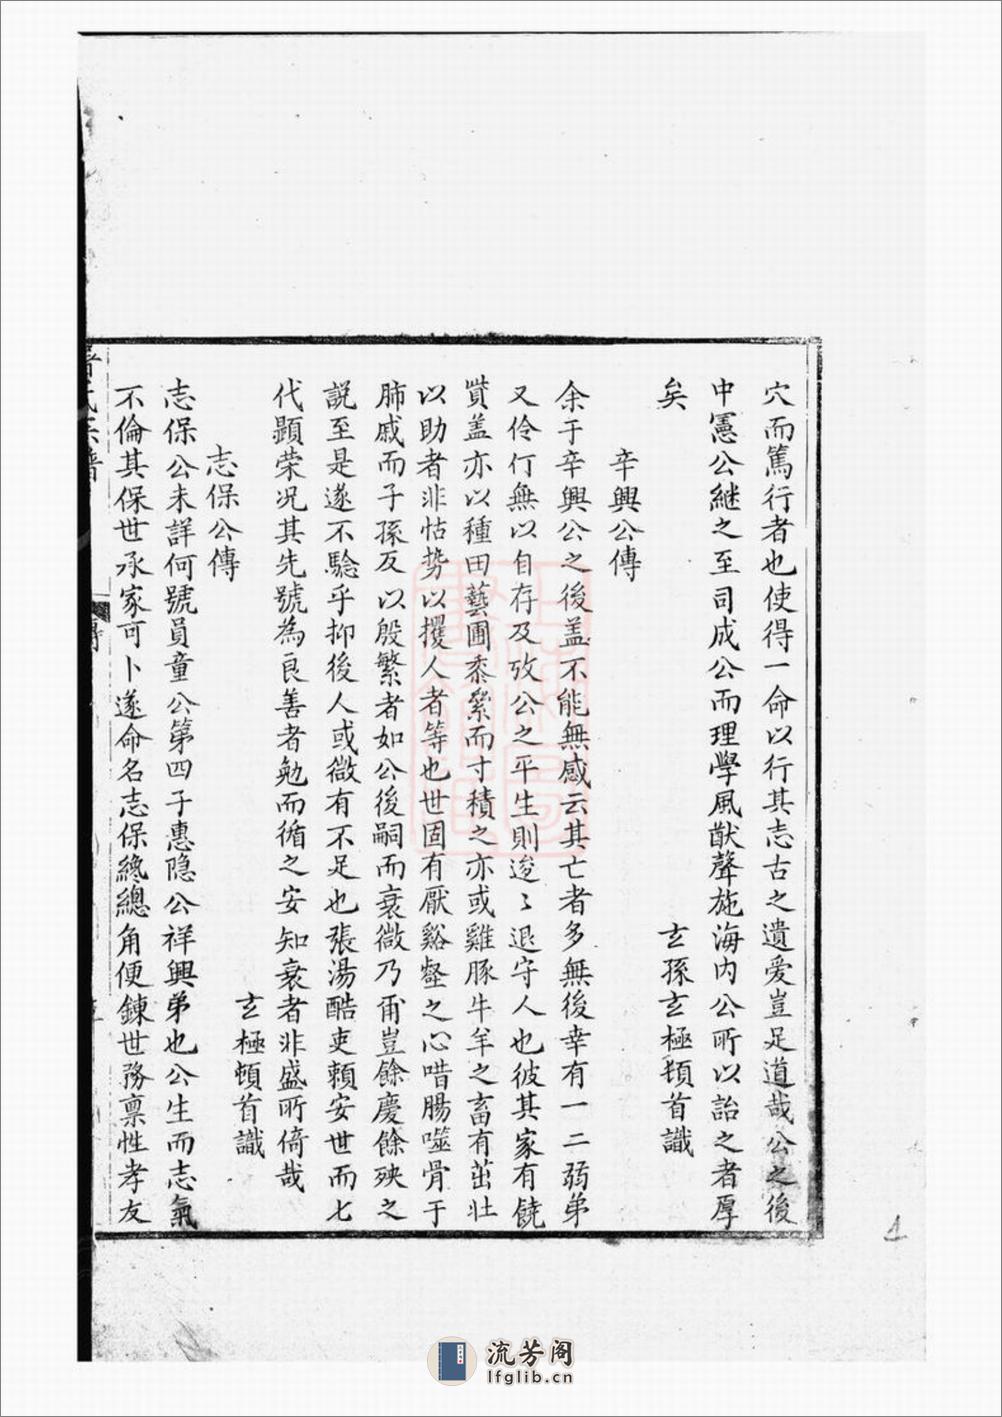 穴而篤行者也使得一命以行其志古之遺愛豈足道哉公之後
中憲公継之至司成公而理學風猷聲施海内公所以詒之者厚
矣　玄孫玄極頓首識
辛興公傳
余于辛興公之後盖不能無感云其亡者多無後幸有一二弱弟
又伶仃無以自存及攷公之平生則逡〻退守人也彼其家有饒
貲盖亦以種田藝圃黍絫而寸積之亦或雞豚牛羊之畜有茁壮
以助者非怙势以攫人者等也世固有厭谿壑之心唶腸噬骨于
肺戚而子孫反以殷繁者如公後嗣而衰微乃甭豈餘慶餘殃之
説至是遂不驗乎抑後人或微有不足也張湯酷吏頼安世而七
代顕荣况其先號為良善者勉而循之安知衰者非盛所倚哉
玄極頓首識
志保公傳
志保公未詳何號員童公第四子惠隐公祥興弟也公生而志氣
不倫其保世承家可卜遂命名志保纔總角便鍊世務禀性孝友
流芳阁
lfglib.cn